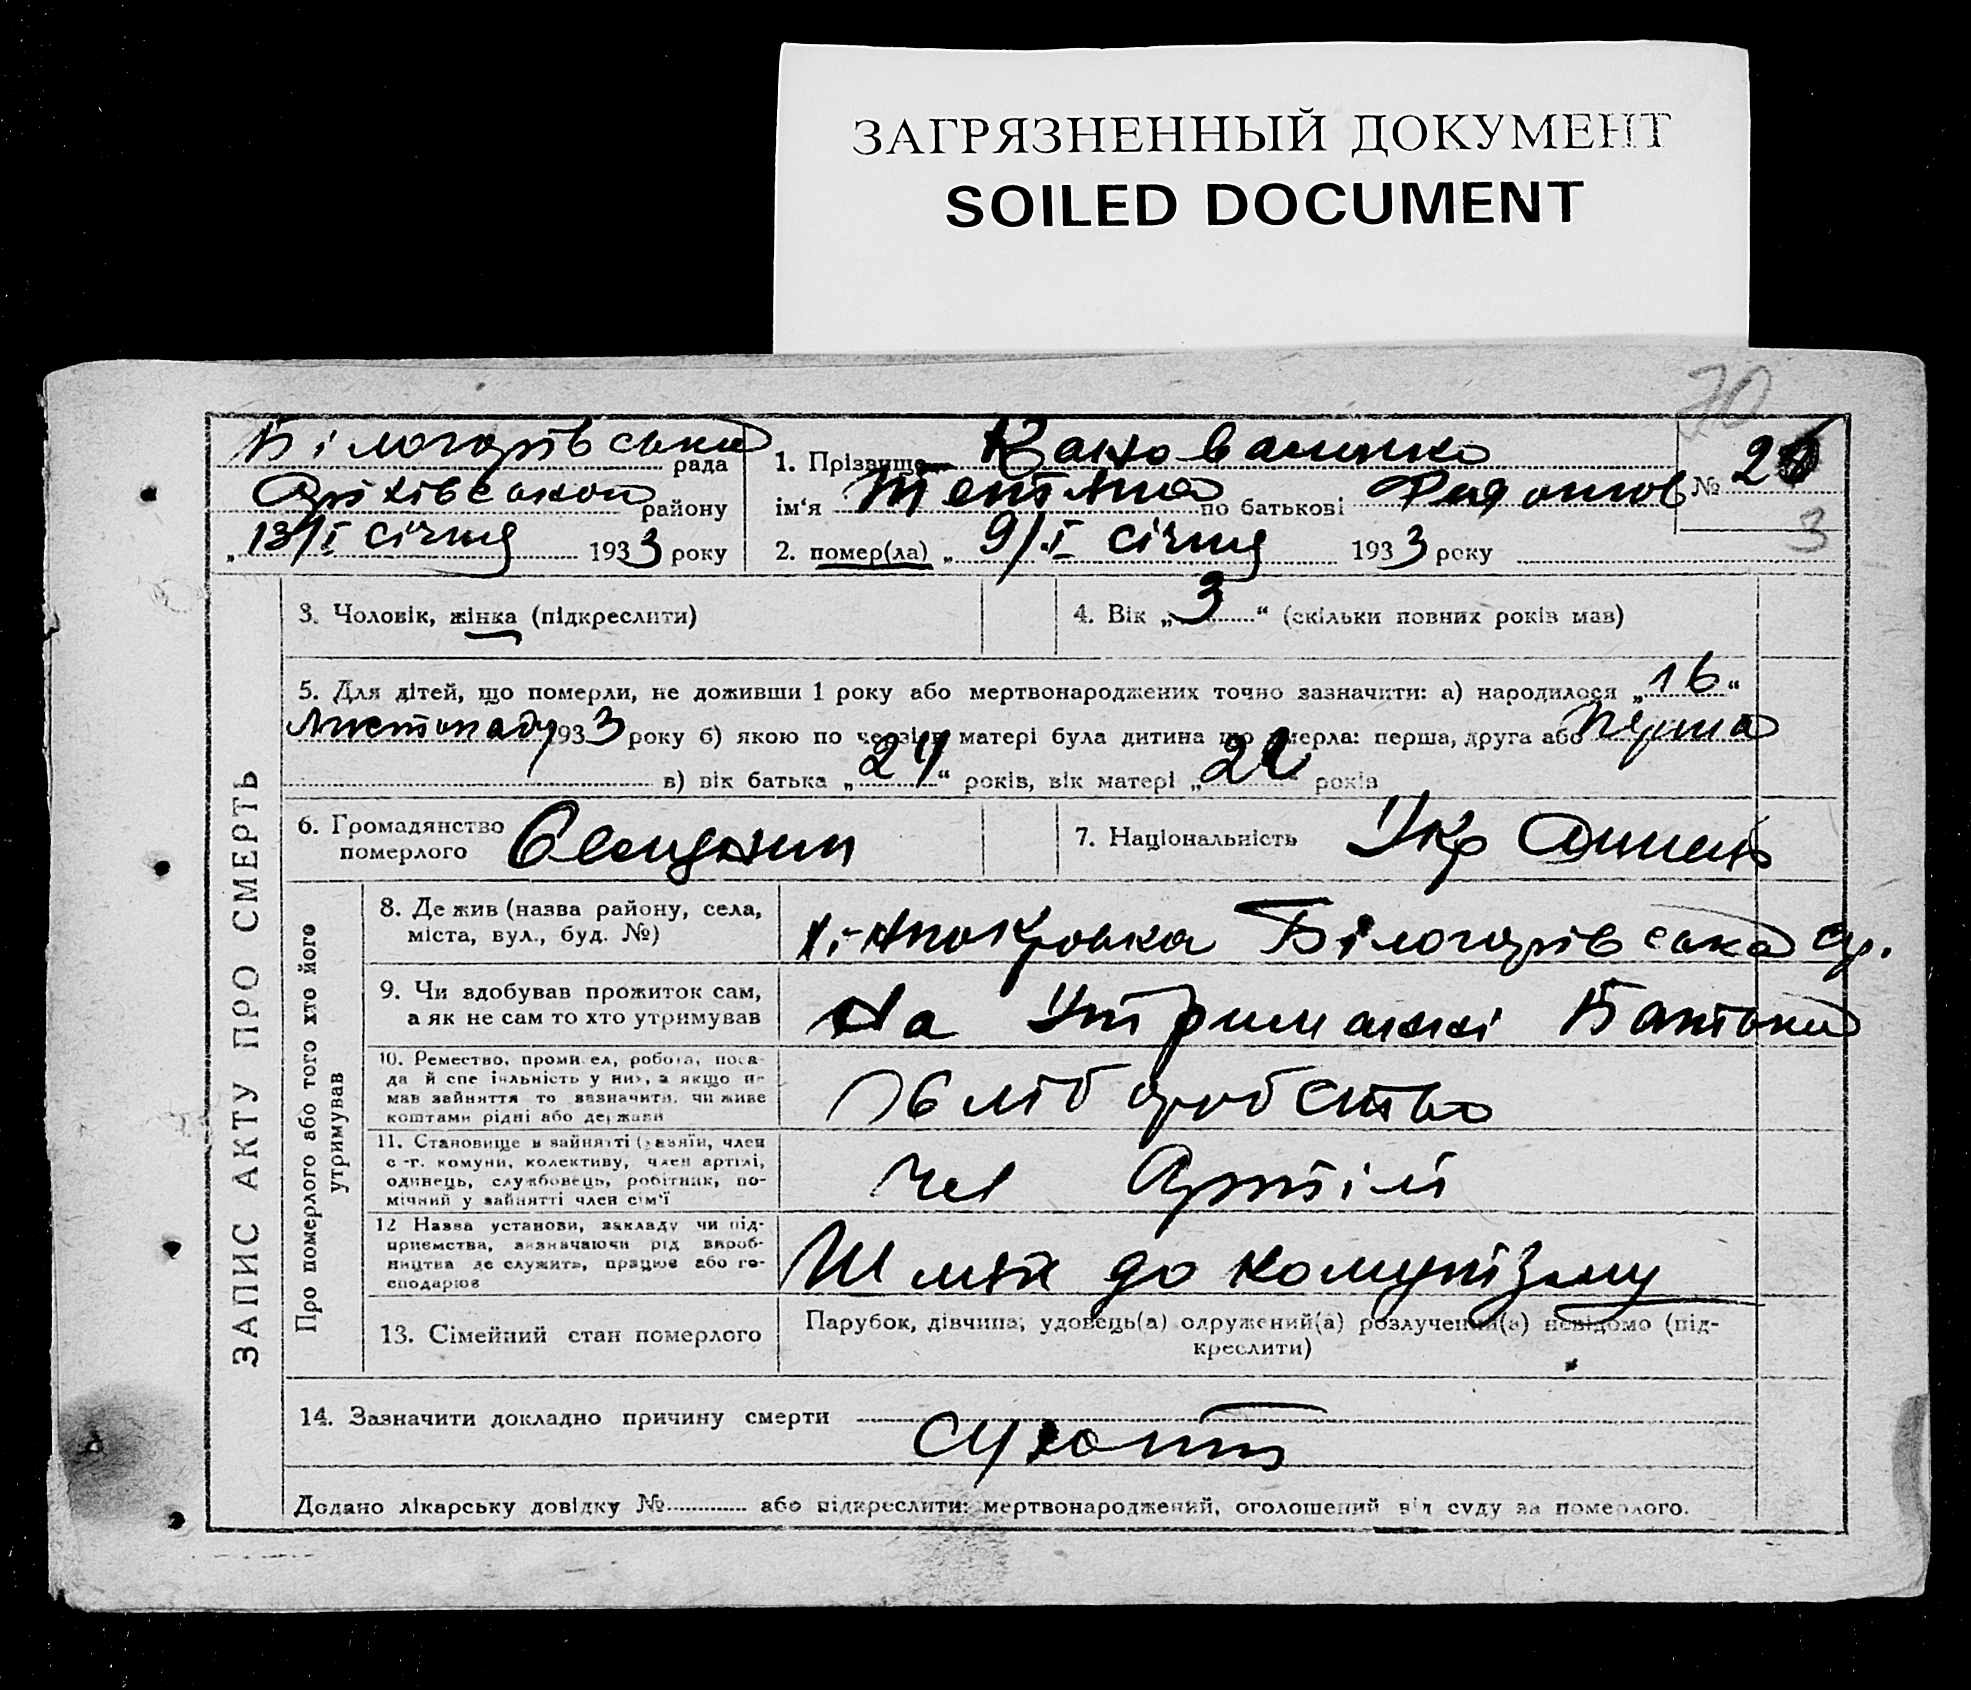 ЗАГРЯЗНЕННЫЙ ДОКУМЕНТ
SOILED DOCUMENT
70
Білогорівська рада
Оріхівський району
„13/I січня 1933 року
1. Прізвище
№ 26
ім'я Тетяна по батькові
2. помер(ла) „ 9/I січня 1933 року
3
ЗАПИС АКТУ ПРО СМЕРТЬ
3. Чоловік, жінка (підкреслити)
4. Вік „ 3 “ (скільки повних років мав)
5. Для дітей, що померли, не доживши 1 року або мертвонароджених точно зазначити: а) народилося „ 16 “
листопаду 1933 року б) якою по черзі в матері була дитина що умерла: перша, друга або перша
в) вік батька „ 24 “ років, вік матері „ років
6. Громадянство
померлого
7. Національність Укр
Про померлого або того хто його
утримував
8. Де жив (назва району, села,
міста, вул., буд. №)
Білогорівська
9. Чи здобував прожиток сам,
а як не сам то хто утримував
На утриманні Батька
10. Ремество, промисел, робота, поса-
да й спеціяльність у них, а якщо не
мав зайняття то зазначити, чи живе
коштами рідні або держави
хліборобство
11. Становище в зайнятті (хазяїн, член
с-г. комуни, колективу, член артілі,
одинець, службовець, робітник, по-
мічний у зайнятті член сім'ї
чл Артілі
12 Назва установи, закладу чи під-
приємства, зазначаючи рід вироб-
ництва де служить, працює або го-
сподарює
Шлях до комунізму
13. Сімейний стан померлого
Парубок, дівчина, удовець(а) одружений(а) розлучений(а) невідомо (під-
креслити)
14. Зазначити докладно причину смерти
сухоти
Додано лікарську довідку № або підкреслити: мертвонароджений, оголошений від суду за померлого.